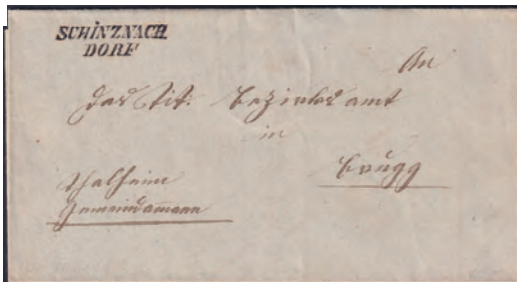 SCHINZNACH
DORF
An
das Tit. Bezirksamt
in
Brugg
Thalheim
Gemeindammann